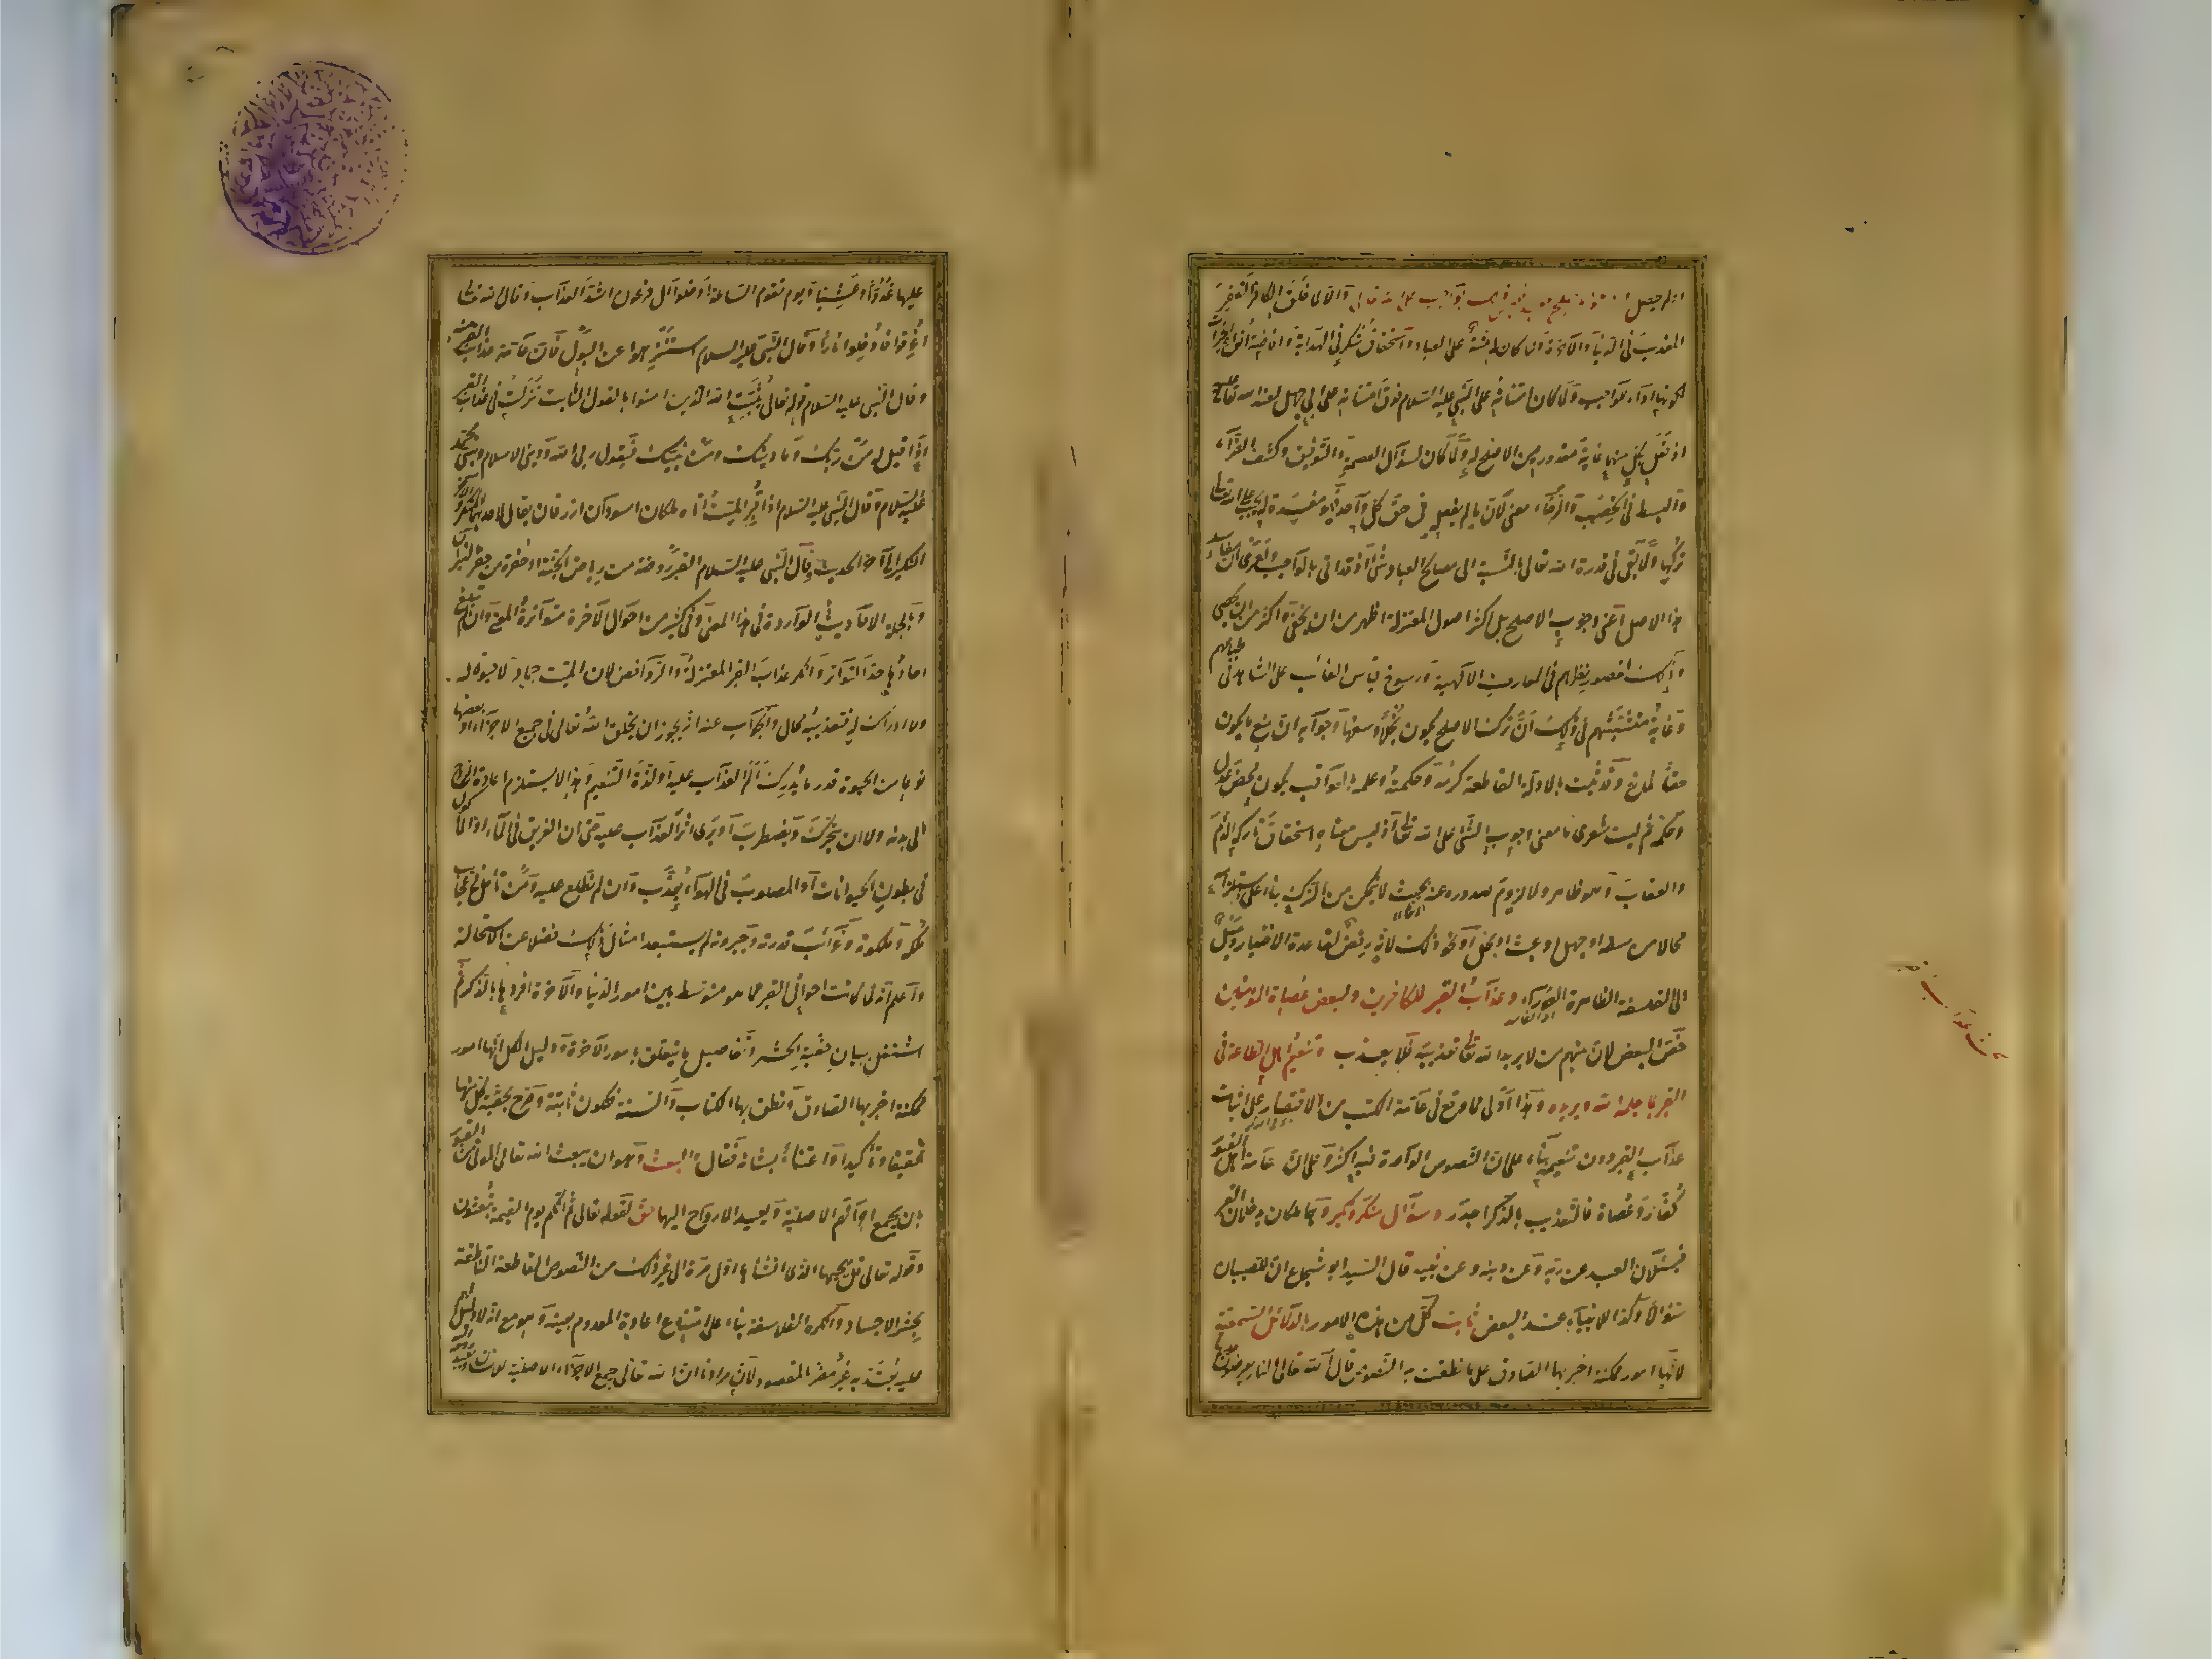 المعذب في الدنيا والآخرة ولما كان له منة على العباد واستحقاق شكر في الهداية وافاضة انواع الخيرات
لكونها اداء للواجب ولما كان امتنانه على النبي عليه السلام فوق امتنانه على ابي جهل لعنه الله تعالى عليه
اذ فعل بكل منهما غاية مقدوره من الاصلح له ولما كان لسؤال العصمة والتوفيق وكشف الضراء
والبسط في الخصب والرخاء معنى لان ما لم يفعله في حق كل واحد فهو مفسدة له يجب على الله تعالى
تركها ولما بقى في قدرة الله تعالى بالنسبة الى مصالح العباد شئ اذ قد اتى بالواجب ولعمرى ان مفاسد
هذا الاصل اعنى وجوب الاصلح بل اكثر اصول المعتزلة اظهر من ان يخفى واكثر من ان يحصى
وذلك لقصور نظرهم في المعارف الالهية ورسوخ قياس الغائب على الشاهد في طباعهم
وغاية متشبثهم في ذلك ان ترك الاصلح يكون بخلا وسفها وجوابه ان منع ما يكون
حق المانع وقد ثبت بالادلة القاطعة كرمه وحكمته وعلمه بالعواقب يكون محض عدل
وحكمة ثم ليت شعرى ما معنى وجوب الشئ على الله تعالى اذ ليس معناه استحقاق تاركه الذم
والعقاب وهو ظاهر ولا لزوم صدوره عنه بحيث لا يتمكن من الترك بناء على استلزامه
محالا من سفه او جهل او عبث او بخل او نحو ذلك لانه رفض لقاعدة الاختيار وميل
الى الفلسفة الظاهرة العوار وعذاب القبر للكافرين ولبعض عصاة المؤمنين
خص البعض لان منهم من لا يريد الله تعالى تعذيبه فلا يعذب وتنعيم اهل الطاعة في
القبر بما يعلمه الله ويريده وهذا اولى مما وقع في عامة الكتب من الاقتصار على اثبات
عذاب القبر دون تنعيمه بناء على ان النصوص الواردة فيه اكثر وعلى ان عامة اهل القبور
كفار وعصاة فالتعذيب بالذكر اجدر وسؤال منكر ونكير وهما ملكان يدخلان القبر
فيسئلان العبد عن ربه وعن دينه وعن نبيه قال السيد ابو شجاع ان للصبيان
سؤالا وكذا للانبياء عند البعض ثابت كل من هذه الامور بالدلائل السمعية
لانها امور ممكنة اخبر بها الصادق على ما نطقت به النصوص قال الله تعالى النار يعرضون
عليها غدوا وعشيا ويوم تقوم الساعة ادخلوا آل فرعون اشد العذاب وقال الله تعالى
اغرقوا فادخلوا نارا وقال النبي عليه السلام استنزهوا عن البول فان عامة عذاب القبر منه
وقال النبي عليه السلام قوله تعالى يثبت الله الذين امنوا بالقول الثابت نزلت في عذاب القبر
اذا قيل له من ربك وما دينك ومن نبيك فيقول ربي الله وديني الاسلام ونبيي محمد
عليه السلام وقال النبي عليه السلام اذا اقبر الميت اتاه ملكان اسودان ازرقان يقال لاحدهما المنكر والاخر
النكير الى آخر الحديث وقال النبي عليه السلام القبر روضة من رياض الجنة او حفرة من حفر النيران
وبالجملة الاحاديث الواردة في هذا المعنى وفي كثير من احوال الآخرة متواترة المعنى وان لم تبلغ
احادها حد التواتر وانكر عذاب القبر المعتزلة والروافض لان الميت جماد لا حيوة له
ولا ادراك له فتعذيبه محال والجواب عنه انه يجوز ان يخلق الله تعالى في جميع الاجزاء او بعضها
نوعا من الحيوة قدر ما يدرك الم العذاب عليه او لذة التنعيم وهذا لا يستلزم اعادة الروح
الى بدنه ولا ان يتحرك ويضطرب او يرى اثر العذاب عليه حتى ان الغريق في الماء او المأكول
في بطون الحيوانات او المصلوب في الهواء يعذب وان لم نطلع عليه ومن تأمل في عجائب
ملكه وملكوته وغرائب قدرته وجبروته لم يستبعد امثال ذلك فضلا عن الاستحالة
واعلم انه لما كانت احوال القبر مما هو متوسط بين امور الدنيا والآخرة افردها بالذكر ثم
اشتغل ببيان حقية الحشر وتفاصيل ما يتعلق بامور الآخرة ودليل الكل انها امور
ممكنة اخبر بها الصادق ونطق بها الكتاب والسنة فتكون ثابتة وصرح بحقية كل منها
تحقيقا وتأكيدا واعتناء بشانه فقال والبعث وهو ان يبعث الله تعالى الموتى من القبور
بان يجمع اجزائهم الاصلية ويعيد الارواح اليها حق لقوله تعالى ثم انكم يوم القيمة تبعثون
وقوله تعالى قل يحييها الذى انشأها اول مرة الى غير ذلك من النصوص القاطعة الناطقة
بحشر الاجساد وانكره الفلاسفة بناء على امتناع اعادة المعدوم بعينه وهو مع انه لا دليل لهم
عليه يعتد به غير مضر بالمقصود لان مرادنا ان الله تعالى يجمع الاجزاء الاصلية للانسان ويعيد